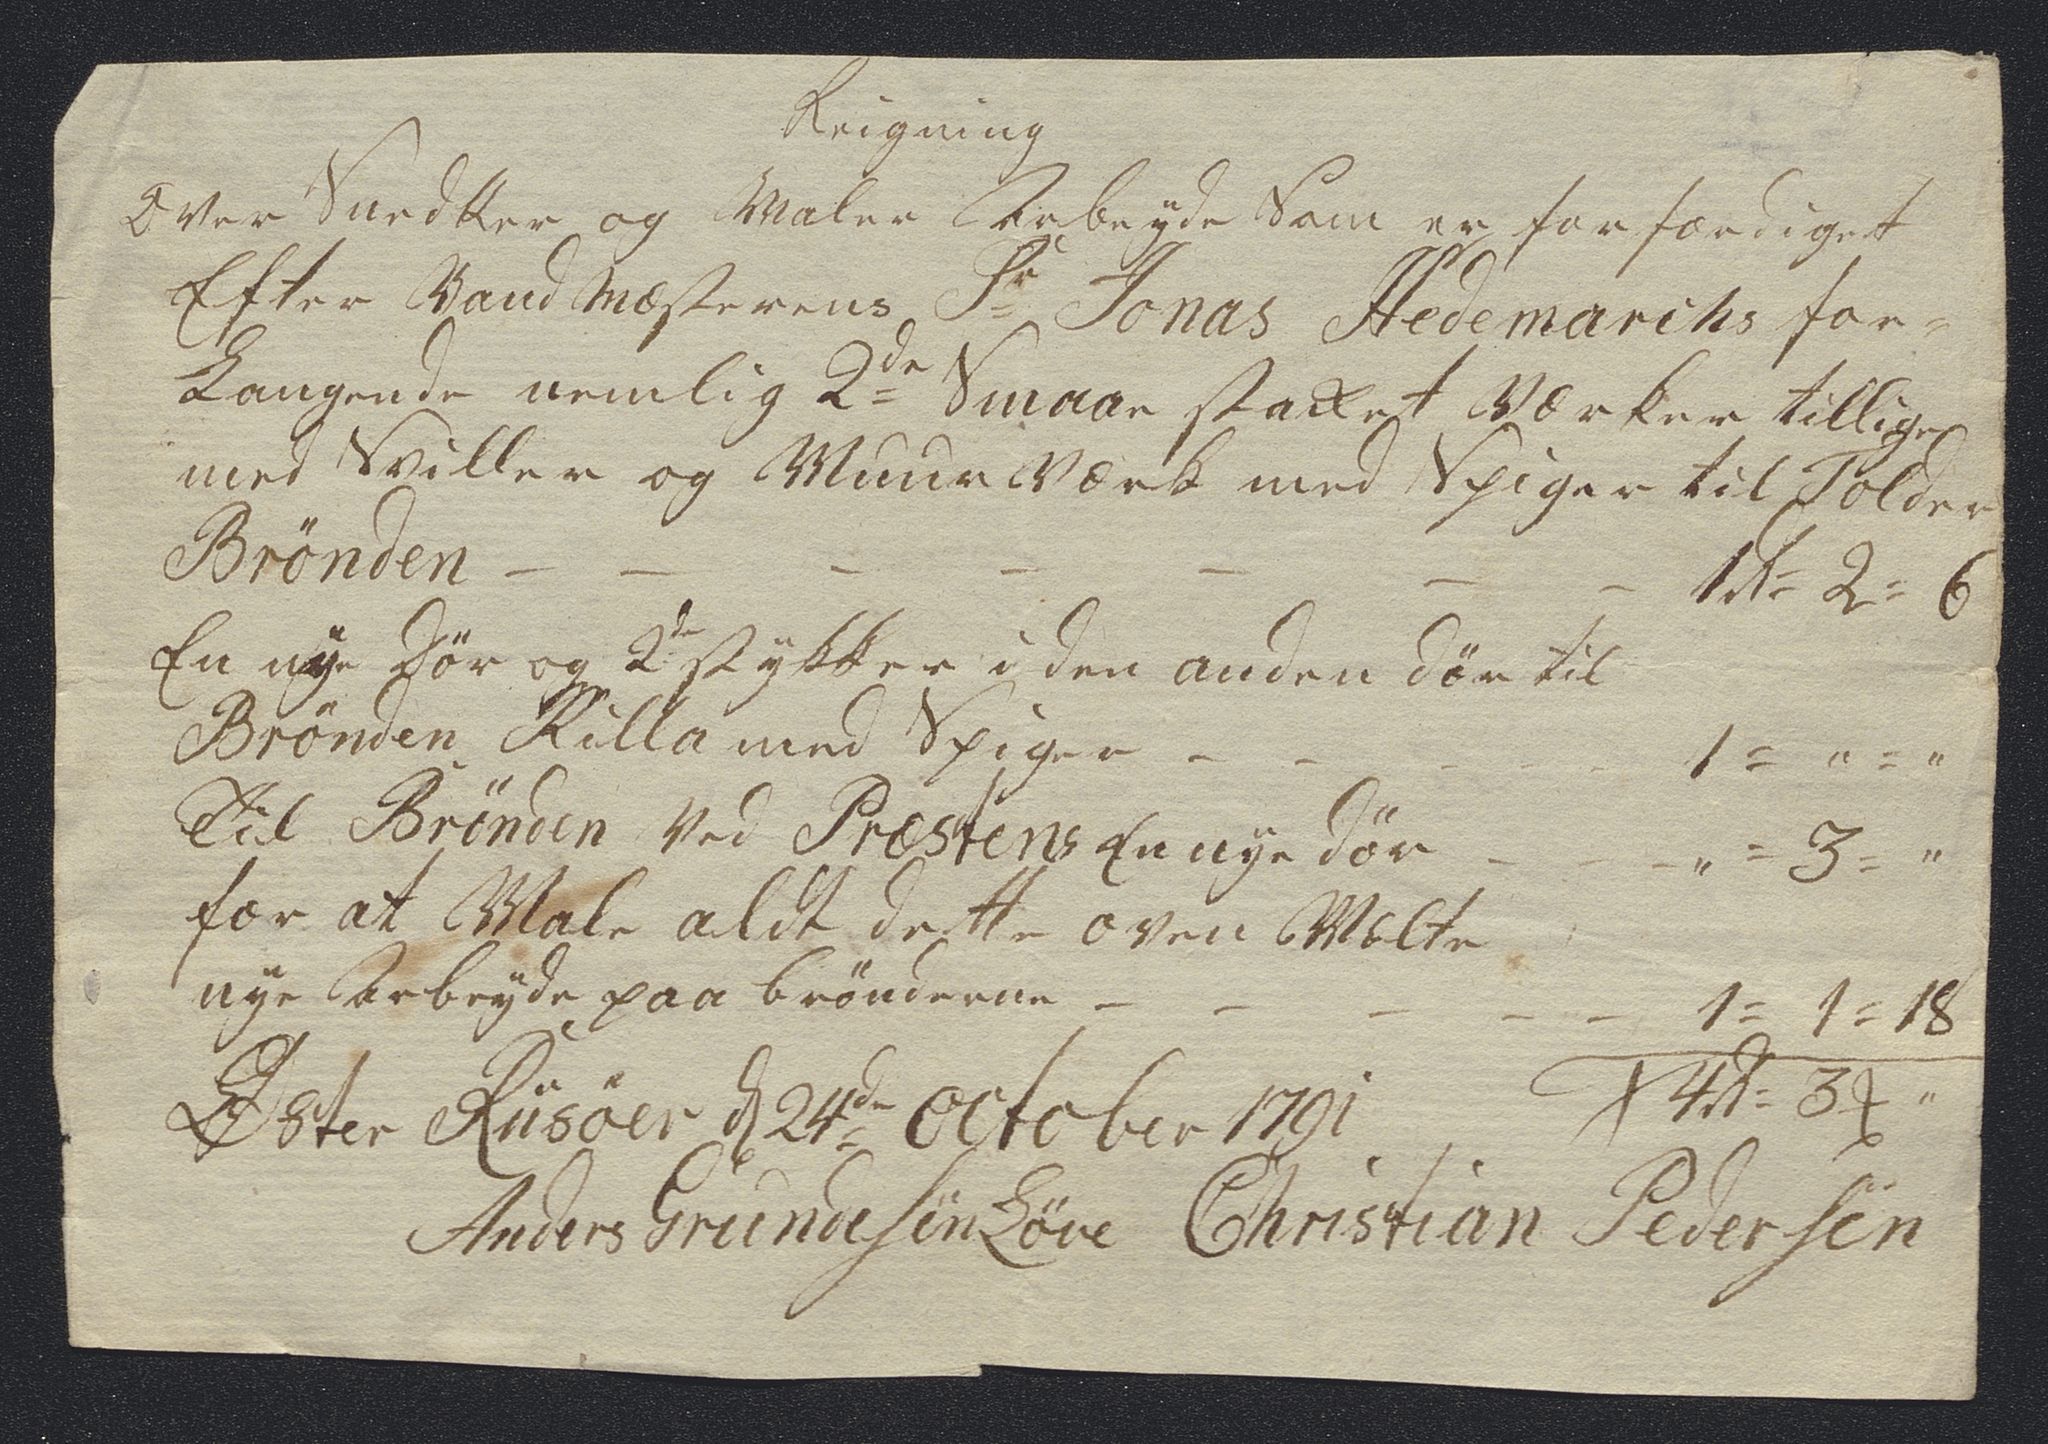 Reigning
Over Snedker og Maler Arbeyde Som er forfærdiget
Efter Vandmæsterens Sr Jonas Hedemarchs for=
Langende nemlig 2de Smaae staket Værker tillige
med Sviller og Muur Værk med Spiger til Tolder
Brönden — — — — — — — 1 rd = 2 = 6
En nye Dör og 2de stykker i den anden dör til
Brönden Killa med Spiger - - - - - 1 = " = "
Til Brönden Ved Præstens En nye dör - - - " = 3 = "
for at Male aldt dette oven Melte
nye Arbeyde paa brönderne - - - - - 1 = 1 = 18
4 rd = 3 "
Öster Riisöer d 24de October 1791
Anders Grundesön Löve Christian Pedersen